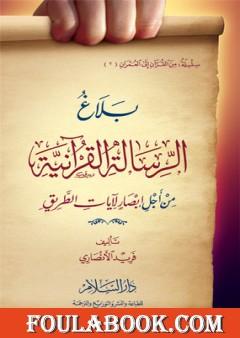 سلسلة: من القرآن إلى العمران (٢)
بَلَاغُ
الرِّسَالَةِ الْقُرْآنِيَّةِ
مِنْ أَجْلِ إِبْصَارٍ لِآيَاتِ الطَّرِيقِ
تأليف
فريد الأنصاري
دار السلام
للطباعة والنشر والتوزيع والترجمة
FOULABOOK.COM